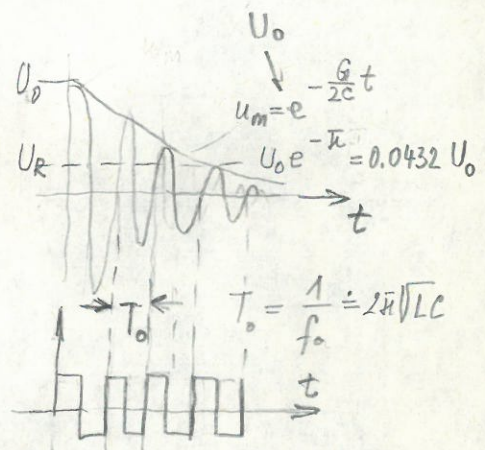 U₀
U₀
u_m = e^{-\frac{G}{2C}t}
U_R
U₀e^{-π} = 0.0432 U₀
t
T₀
T₀ = \frac{1}{f₀} ≐ 2π√LC
t